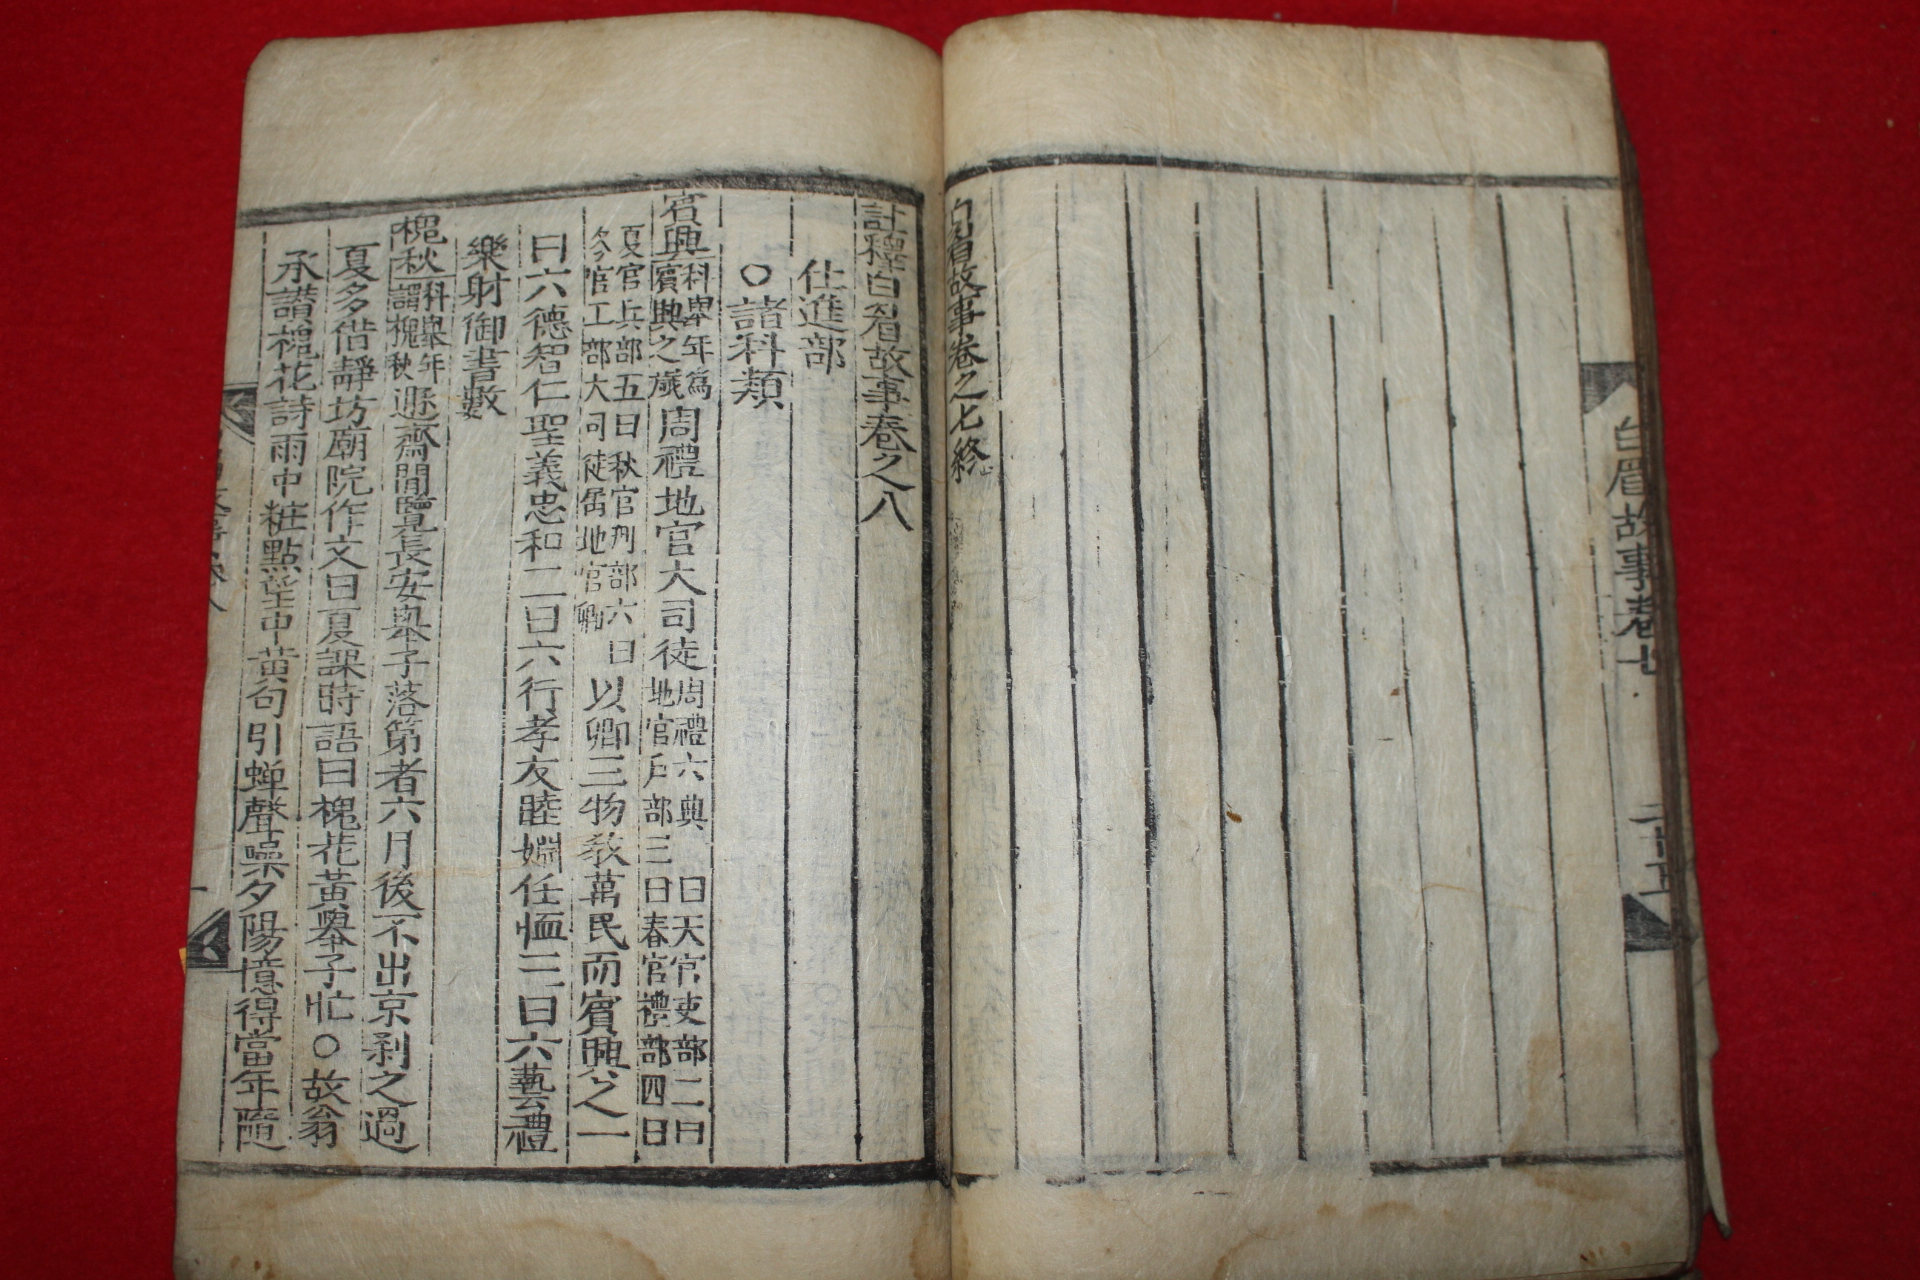 白眉故事卷七
二十五
白眉故事卷之七終
註釋白眉故事卷之八
仕進部
○諸科類
賓興科舉年爲賓興之歲周禮地官大司徒周禮六典一曰天官吏部二曰地官戶部三曰春官禮部四曰
夏官兵部五曰秋官刑部六曰冬官工部大司徒属地官卿以卿三物敎萬民而賓興之一
曰六德智仁聖義忠和二曰六行孝友睦婣任恤三曰六藝禮
樂射御書數
槐秋科舉年謂槐秋遯齋閒覽長安舉子落第者六月後不出京剎之過
夏多借靜坊廟院作文曰夏課時語曰槐花黃舉子忙○故翁
承讃槐花詩雨中粧點望中黃句引蟬聲噪夕陽憶得當年隨